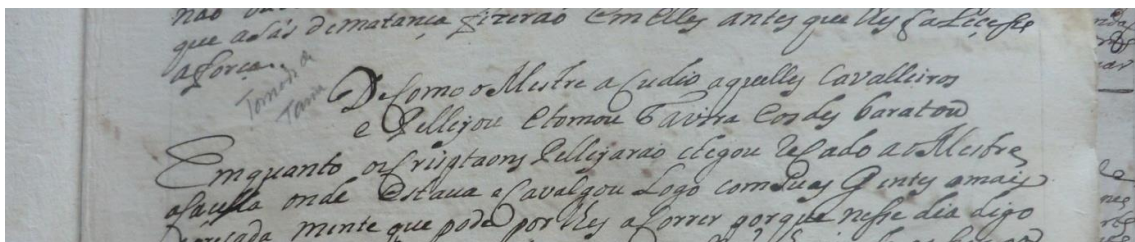 que asás de matança fizerão em elles antes que lhes faleçesse
a força.
Tomada de
Tavira
De como o Mestre acudio aquelles Cavalleiros
e Pellejou e tomou Tavira e os des baratou
Emquanto os Cristaons Pellejarão chegou Recado ao Mestre
onde estava e Cavalgou Logo com suas Gentes a mais
mente que pode por lhes acorrer porque nesse dia digo